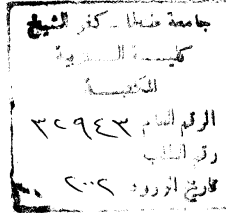 جامعة طنطا - كفر الشيخ
كلية التربية
المكتبة
الرقم العام ٣٢٩٤٣
رقم الطلب
تاريخ الورود ٢٠٠٢